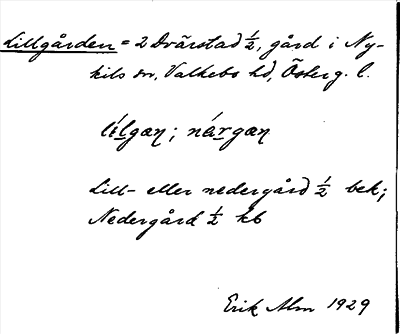 Lillgården = 2 Dvärstad ½, gård i Ny-
kils sn, Valkebo hd, Österg. l.
lílgæn; nárgæn
Lill- eller nedergård ½ bek;
Nedergård ½ kb
Erik Alm 1929